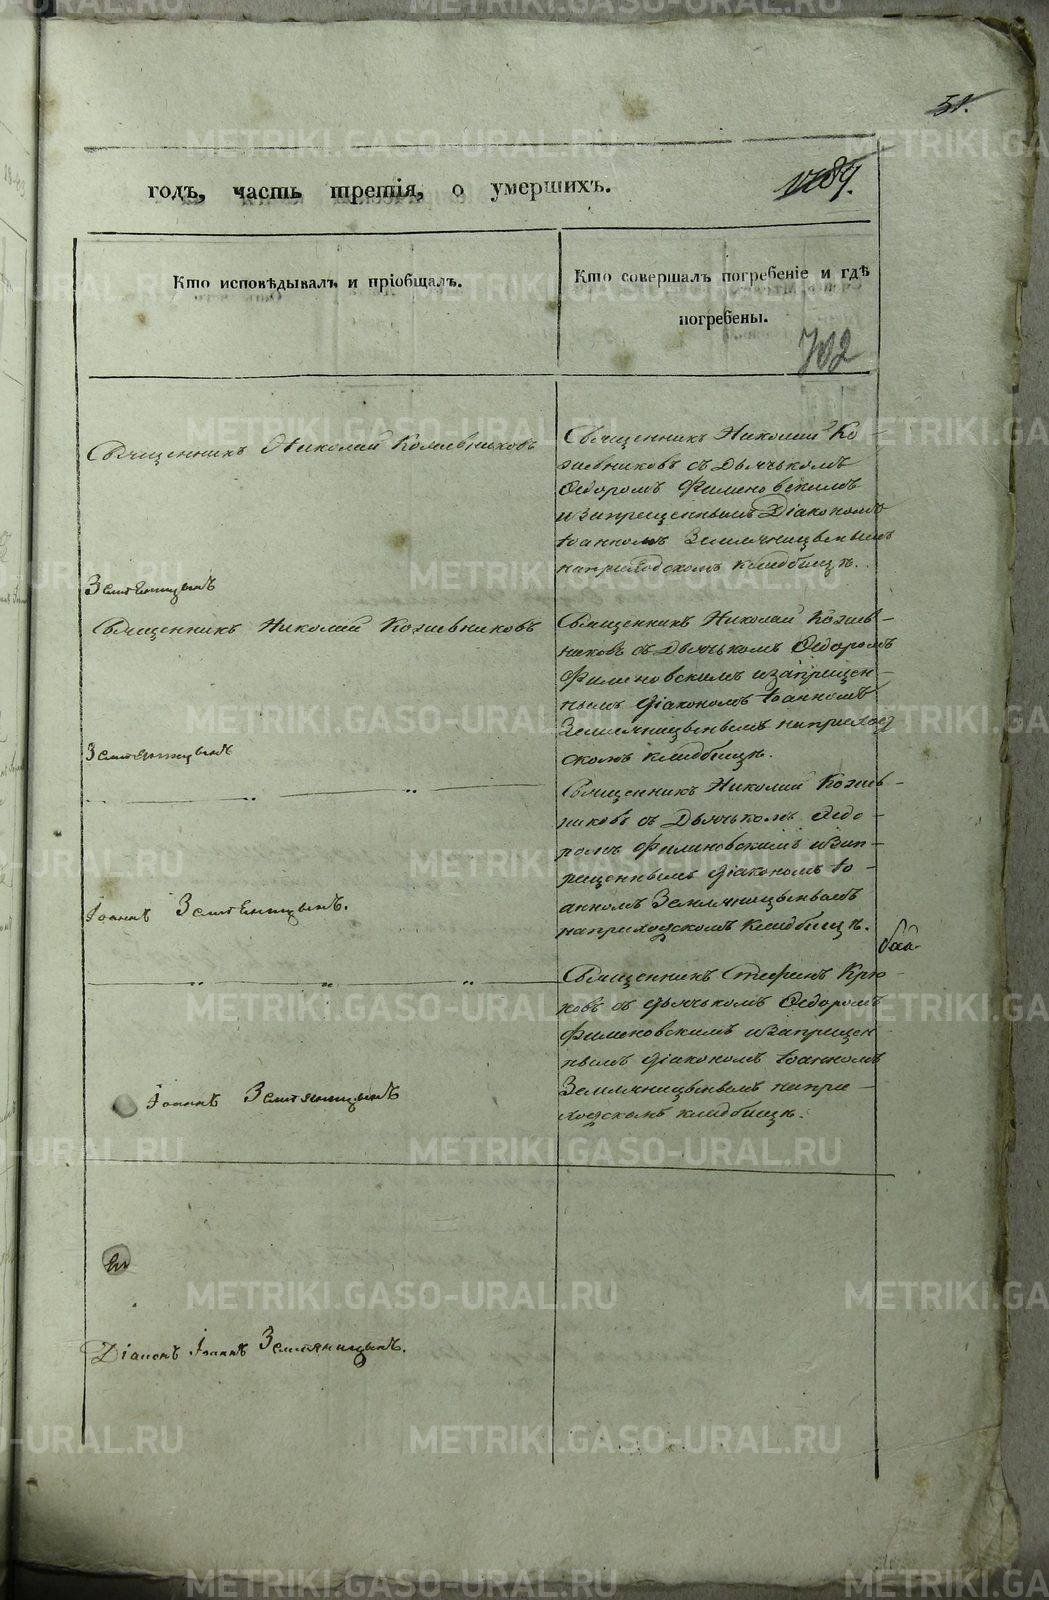 51.
годъ, часть третія, о умершихъ.
Кто исповѣдывалъ и пріобщалъ.
Кто совершалъ погребеніе и гдѣ
погребены.
702
Священникъ Николай Кожевниковъ
Священникъ Николай Ко-
жевниковъ съ Дьячькомъ
Ѳедоромъ Филиновскимъ
и запрещеннымъ Діакономъ
Іоанномъ Земляницынымъ
на приходскомъ кладбищѣ.
Земляницынъ
Священникъ Николай Кожевниковъ
Священникъ Николай Кожев-
никовъ съ Дьячькомъ Ѳедоромъ
Филиновскимъ и запрещен-
нымъ Діакономъ Іоанномъ
Земляницынымъ на приход
скомъ кладбищѣ.
Земляницынъ
Священникъ Николай Кожев-
никовъ съ Дьячькомъ Ѳедо-
ромъ Филиновскимъ и зап-
рещеннымъ Діакономъ Іо-
анномъ Земляницынымъ
на приходскомъ кладбищѣ.
Іоаннъ Земляницынъ.
Священникъ Стефанъ Крю-
ковъ съ Дьячькомъ Ѳедоромъ
Филиновскимъ и запрещен
нымъ Діакономъ Іоанномъ
Земляницынымъ на при-
ходскомъ кладбищѣ.
Іоаннъ Земляницынъ
Діаконъ Іоаннъ Земляницынъ.
METRIKI.GASO-URAL.RU